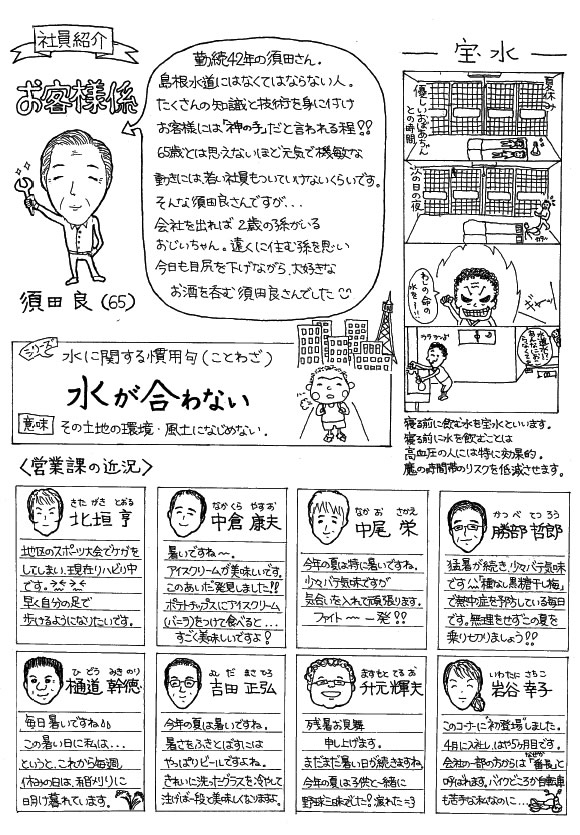 社員紹介
お客様係
須田 良 (65)
勤続42年の須田さん。
島根水道にはなくてはならない人。
たくさんの知識と技術を身に付け
お客様には「神の手」だと言われる程!!
65歳とは思えないほど元気で機敏な
動きには、若い社員もついていけないくらいです。
そんな須田良さんですが...
会社を出れば 2歳の孫がいる
おじいちゃん。遠くに住む孫を思い
今日も目尻を下げながら、大好きな
お酒を呑む須田良さんでした
宝水
夏休み
優しいおばあちゃん
との時間
次の日の夜
わしの命の
水をー!!
寝る前に飲む水を宝水といいます。
寝る前に水を飲むことは
高血圧の人には特に効果的。
魔の時間帯のリスクを低減させます。
シリーズ
水に関する慣用句(ことわざ)
水が合わない
意味 その土地の環境・風土になじめない.
〈営業課の近況〉
きたがき とおる
北垣 亨
地区のスポーツ大会でケガを
してしまい、現在リハビリ中
です。
早く自分の足で
歩けるようになりたいです。
なかくら やすお
中倉 康夫
暑いですね〜。
アイスクリームが美味しいです。
このあいだ発見しました!!
ポテトチップスにアイスクリーム
(バニラ)をつけて食べると...
すごく美味しいですよ!
なかお さかえ
中尾 栄
今年の夏は特に暑いですね。
少々バテ気味ですが
気合いを入れて頑張ります。
ファイト 一発!!
かつべ てつろう
勝部 哲郎
猛暑が続き、少々バテ気味
です^^;「種なし黒糖干し梅」
で熱中症を予防している毎日
です。無理をせずこの夏を
乗り切りましょう!!
ひどう みきのり
樋道 幹徳
毎日暑いですね
この暑い日に私は...
というと、これから毎週、
休みの日は、稲刈りに
明け暮れています。
よしだ まさひろ
吉田 正弘
今年の夏は暑いですね。
暑さをふきとばすには
やっぱりビールですよね。
きれいに洗ったグラスを冷やして
注げば一段と美味しくなりますよ。
ますもと てるお
升元 輝夫
残暑お見舞
申し上げます。
まだまだ暑い日が続きますね。
今年の夏は子供と一緒に
野球三昧でした! 疲れた=3
いわたに さちこ
岩谷 幸子
このコーナーに"初登場"しました。
4月に入社し、はや5ヶ月目です。
会社の一部の方からはなぜか「番長」と
呼ばれます。バイクどころか自転車
も苦手な私なのに...